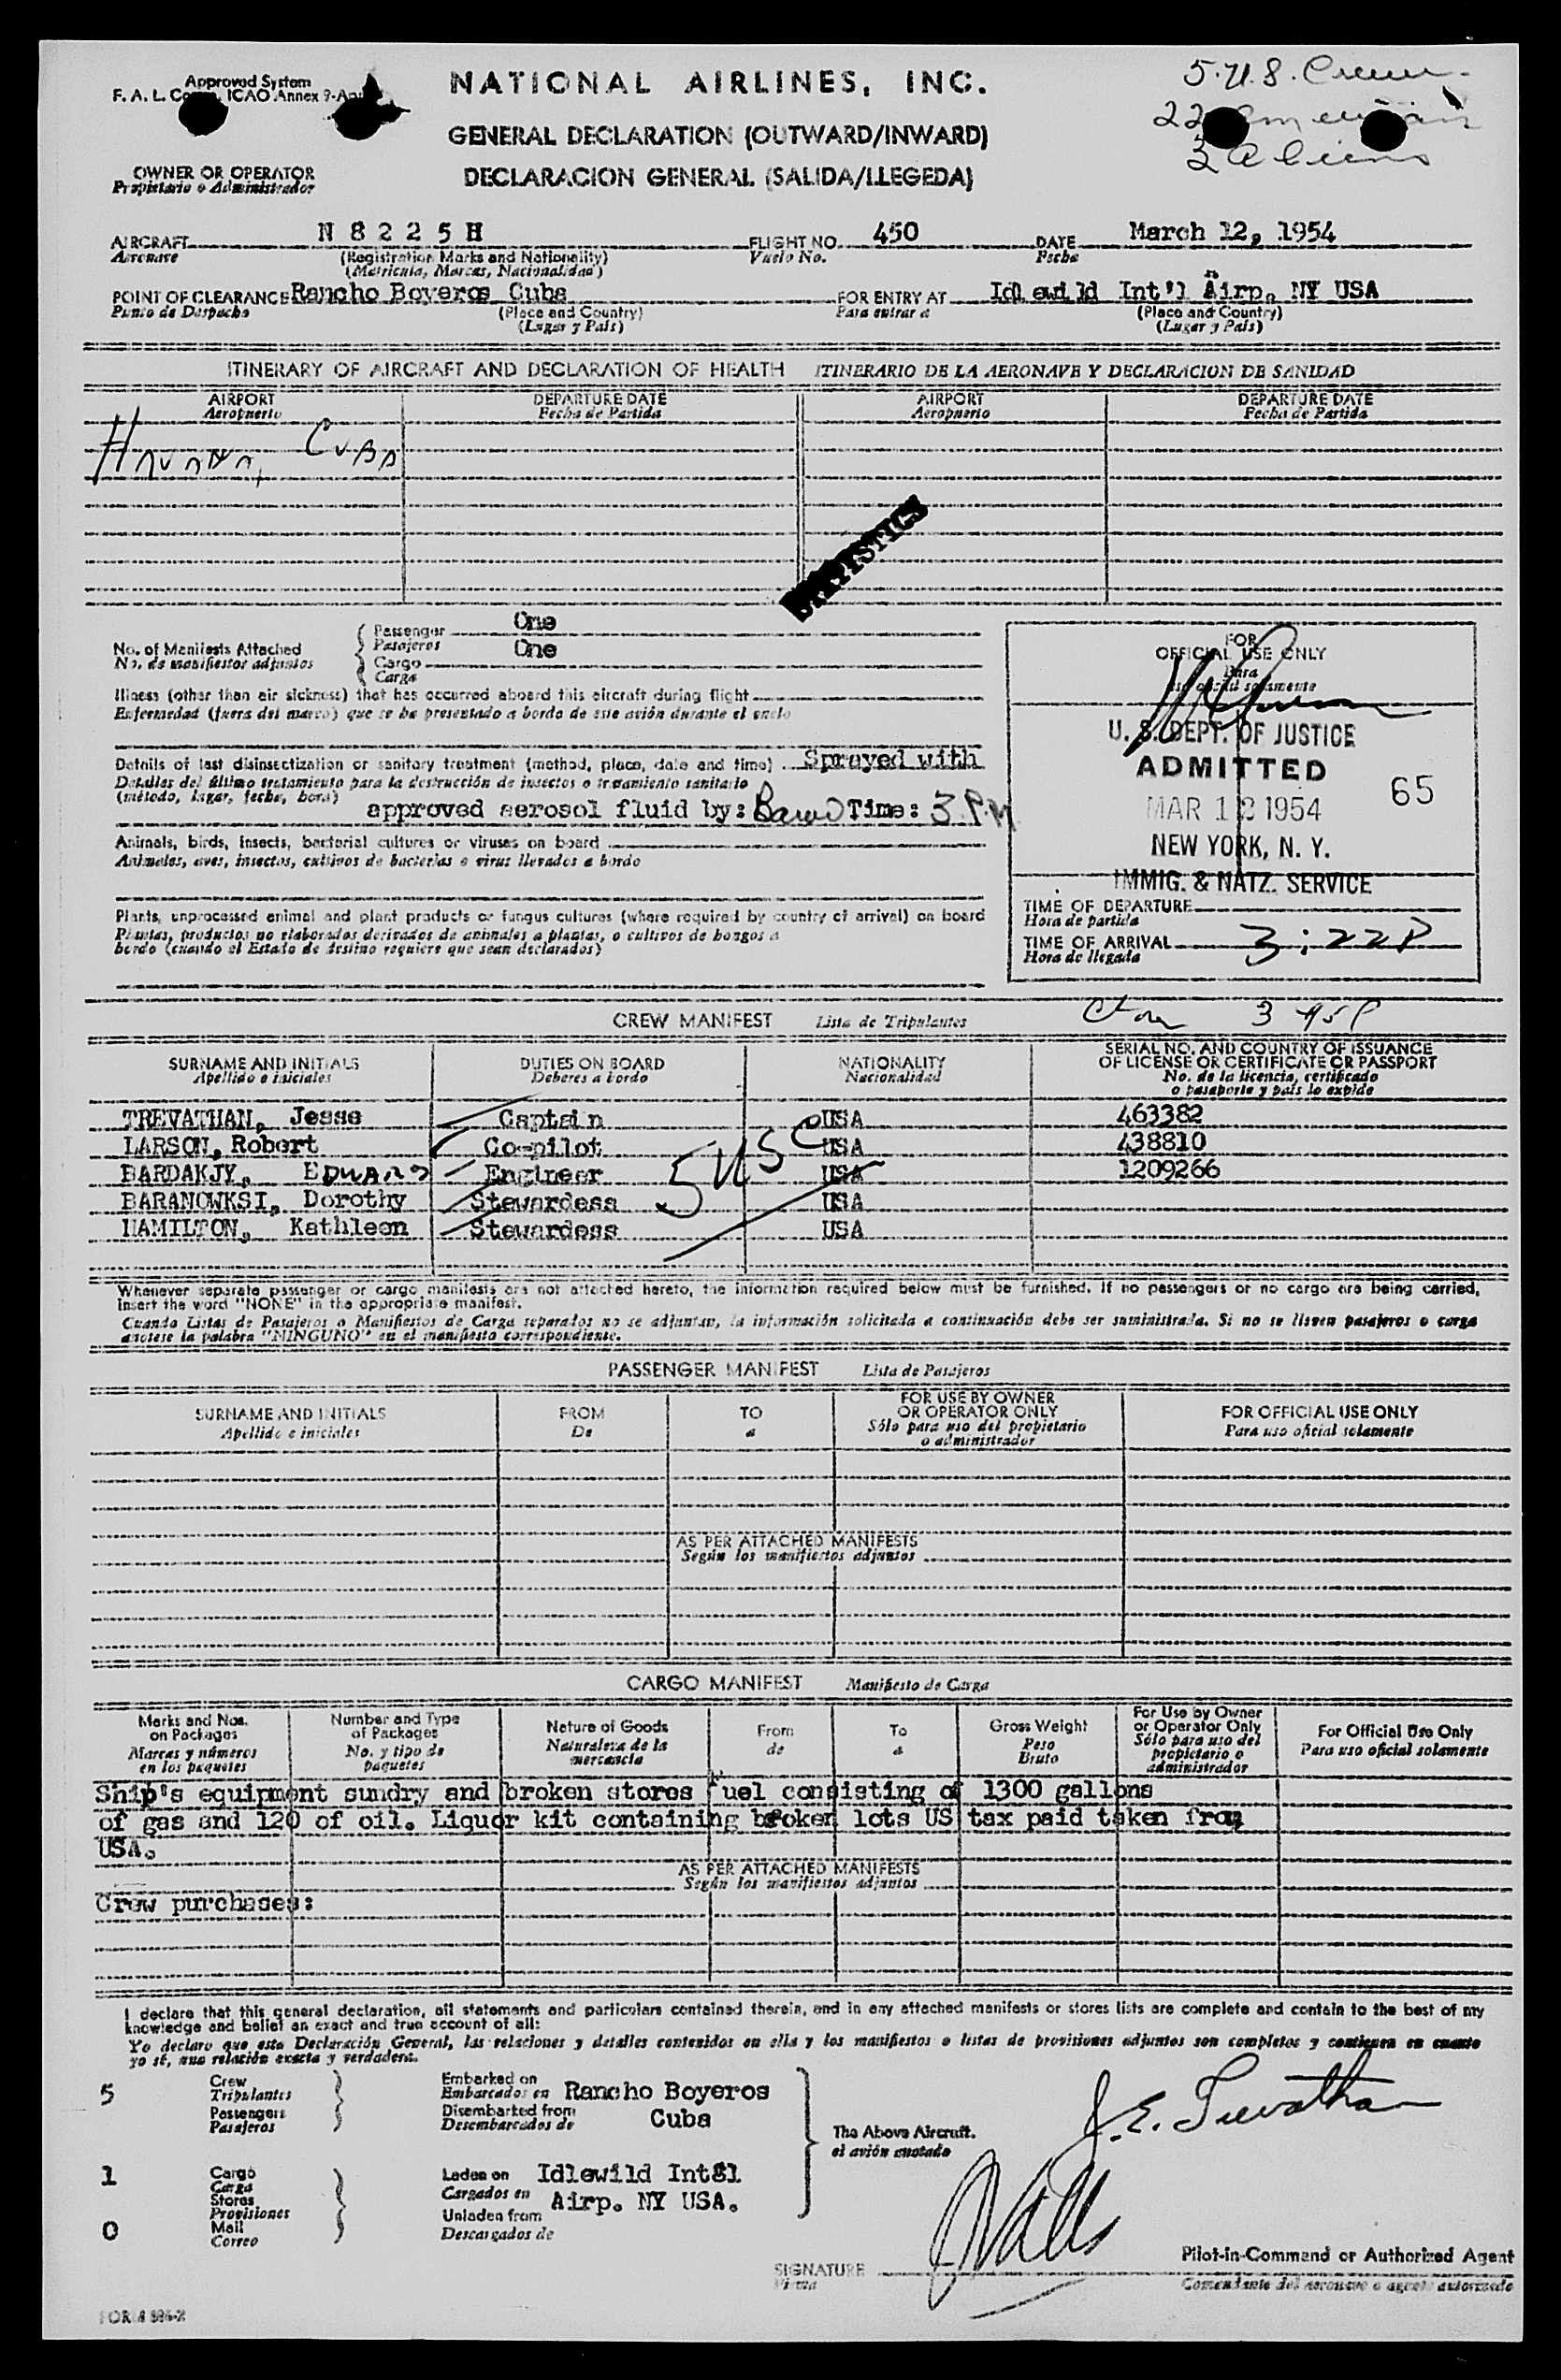 Approved System
F. A. L. ICAO Annex 9-
NATIONAL AIRLINES, INC.
GENERAL DECLARATION (OUTWARD/INWARD)
DECLARACION GENERAL (SALIDA/LLEGEDA)
5 U.S. Crew
22 American
3 Aliens
OWNER OR OPERATOR
Propietario o Administrador
AIRCRAFT N 8 2 2 5 H FLIGHT NO. 450 DATE March 12, 1954
Aeronave (Registration Marks and Nationality) Vuelo No. Fecha
(Matricula, Marcas, Nacionalidad)
POINT OF CLEARANCE Rancho Boyeros Cuba FOR ENTRY AT Idlewild Int'l Airp. NY USA
Punto de Despacho (Place and Country) Para entrar a (Place and Country)
(Lugar y País) (Lugar y País)
ITINERARY OF AIRCRAFT AND DECLARATION OF HEALTH ITINERARIO DE LA AERONAVE Y DECLARACION DE SANIDAD
AIRPORT DEPARTURE DATE AIRPORT DEPARTURE DATE
Aeropuerto Fecha de Partida Aeropuerto Fecha de Partida
Havana, Cuba
STATISTICS
No. of Manifests Attached
No. de manifiestos adjuntos
Passenger One
Pasajeros
Cargo One
Carga
Illness (other than air sickness) that has occurred aboard this aircraft during flight
Enfermedad (fuera del mareo) que se ha presentado a bordo de este avión durante el vuelo
Details of last disinsectization or sanitary treatment (method, place, date and time) Sprayed with
Detalles del último tratamiento para la destrucción de insectos o tratamiento sanitario
(método, lugar, fecha, hora)
approved aerosol fluid by: Time: 3 P.M
Animals, birds, insects, bacterial cultures or viruses on board
Animales, aves, insectos, cultivos de bacterias o virus llevados a bordo
Plants, unprocessed animal and plant products or fungus cultures (where required by country of arrival) on board
Plantas, productos no elaborados derivados de animales a plantas, o cultivos de hongos a
bordo (cuando el Estado de destino requiere que sean declarados)
FOR
OFFICIAL USE ONLY
Para
uso oficial solamente
U. S. DEPT. OF JUSTICE
ADMITTED
65
MAR 12 1954
NEW YORK, N. Y.
IMMIG. & NATZ. SERVICE
TIME OF DEPARTURE
Hora de partida
TIME OF ARRIVAL 3:22P
Hora de llegada
3 45P
CREW MANIFEST Lista de Tripulantes
SURNAME AND INITIALS DUTIES ON BOARD NATIONALITY SERIAL NO. AND COUNTRY OF ISSUANCE
OF LICENSE OR CERTIFICATE OR PASSPORT
Apellido e iniciales Deberes a bordo Nacionalidad No. de la licencia, certificado
o pasaporte y país lo expide
TREVATHAN, Jesse Captain USA 463382
LARSON, Robert Co-pilot USA 438810
BARDAKJY, EDWARD Engineer USA 1209266
BARANOWKSI, Dorothy Stewardess USA
HAMILTON, Kathleen Stewardess USA
5 USC
Whenever separate passenger or cargo manifests are not attached hereto, the information required below must be furnished. If no passengers or no cargo are being carried,
insert the word "NONE" in the appropriate manifest.
Cuando Listas de Pasajeros o Manifiestos de Carga separados no se adjuntan, la información solicitada a continuación debe ser suministrada. Si no se lleven pasajeros o carga
anotese la palabra "NINGUNO" en el manifiesto correspondiente.
PASSENGER MANIFEST Lista de Pasajeros
SURNAME AND INITIALS FROM TO FOR USE BY OWNER
OR OPERATOR ONLY FOR OFFICIAL USE ONLY
Apellido e iniciales De a Sólo para uso del propietario
o administrador Para uso oficial solamente
AS PER ATTACHED MANIFESTS
Según los manifiestos adjuntos
CARGO MANIFEST Manifiesto de Carga
Marks and Nos.
on Packages
Marcas y números
en los paquetes
Number and Type
of Packages
No. y tipo de
paquetes
Nature of Goods
Naturaleza de la
mercancía
From
de
To
a
Gross Weight
Peso
Bruto
For Use by Owner
or Operator Only
Sólo para uso del
propietario o
administrador
For Official Use Only
Para uso oficial solamente
Ship's equipment sundry and broken stores fuel consisting of 1300 gallons
of gas and 120 of oil. Liquor kit containing broken lots US tax paid taken from
USA.
AS PER ATTACHED MANIFESTS
Según los manifiestos adjuntos
Crew purchases:
I declare that this general declaration, all statements and particulars contained therein, and in any attached manifests or stores lists are complete and contain to the best of my
knowledge and belief an exact and true account of all:
Yo declaro que esta Declaración General, las relaciones y detalles contenidos en ella y los manifiestos o listas de provisiones adjuntos son completos y contienen en cuanto
yo sé, una relación exacta y verdadera.
5 Crew
Tripulantes
Passengers
Pasajeros
Embarked on
Embarcados en Rancho Boyeros
Disembarked from Cuba
Desembarcados de
The Above Aircraft.
el avión anotado
J. E. Trevathan
1 Cargo
Carga
Stores
Provisiones
0 Mail
Correo
Laden on Idlewild Int'l
Cargados en Airp. NY USA.
Unladen from
Descargados de
SIGNATURE
Firma
Pilot-in-Command or Authorized Agent
Comandante del aeronave o agente autorizado